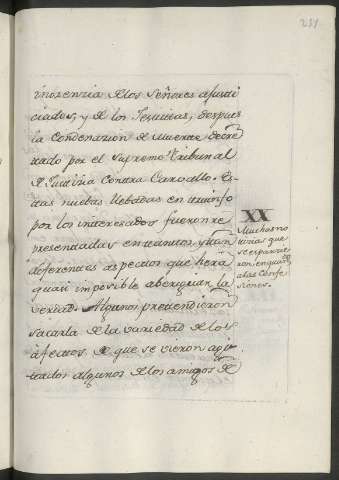 211
inozenzia de los Señores ajusti
ciados, y de los Jesuitas, despues
la Condenazion de muerte decre
tado por el Supremo Tribunal
de Justizia Contra Carvallo. Es
tas nuebas llebadas en triunfo
por los interesados fueron re
presentadas en tantos y tan
diferentes aspectos que hera
quasi imposible aberiguar la
verdad. Algunos pretendieron
sacarla de la variedad de los
afectos, de que se vieron agi
tados algunos de los amigos de
XX
Muchas no
tizias que
se esparzie
ron en quando
a las Confe
siones.